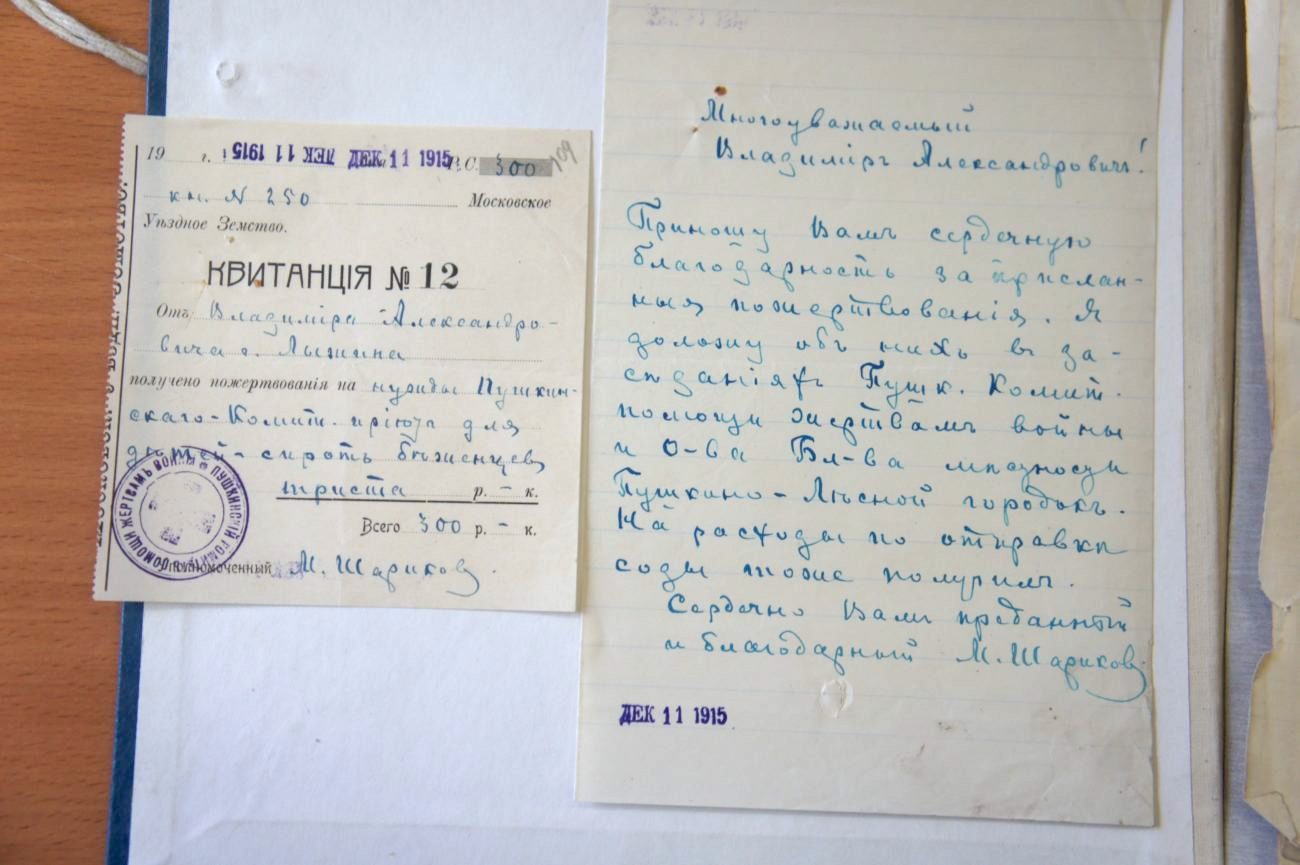 19 г. ДЕК 11 1915 ДЕК 11 1915 Р.С. 300
109
кн. N 250 Московское
Уѣздное Земство.
КВИТАНЦІЯ № 12
Отъ Владиміра Александро-
вича г. Лыжина
получено пожертвованія на нужды Пушкин-
скаго-Комит. пріютъ для
дѣтей-сиротъ бѣженцевъ
триста р. – к.
Всего 300 р. – к.
Уполномоченный М. Шариковъ.
ПОМОЩИ ЖЕРТВАМЪ ВОЙНЫ ПУШКИНСКІЙ КОМИТЕТЪ
Многоуважаемый
Владиміръ Александровичъ!
Приношу Вамъ сердечную
благодарность за прислан-
ныя пожертвованія. Я
доложу объ нихъ въ за-
сѣданіяхъ Пушк. Комит.
помощи жертвамъ войны
и О-ва Бл-ва мѣстности
Пушкино-Лѣсной городокъ.
На расходы по отправкѣ
соды тоже получилъ.
Сердечно Вамъ преданный
и благодарный М. Шариковъ
ДЕК 11 1915